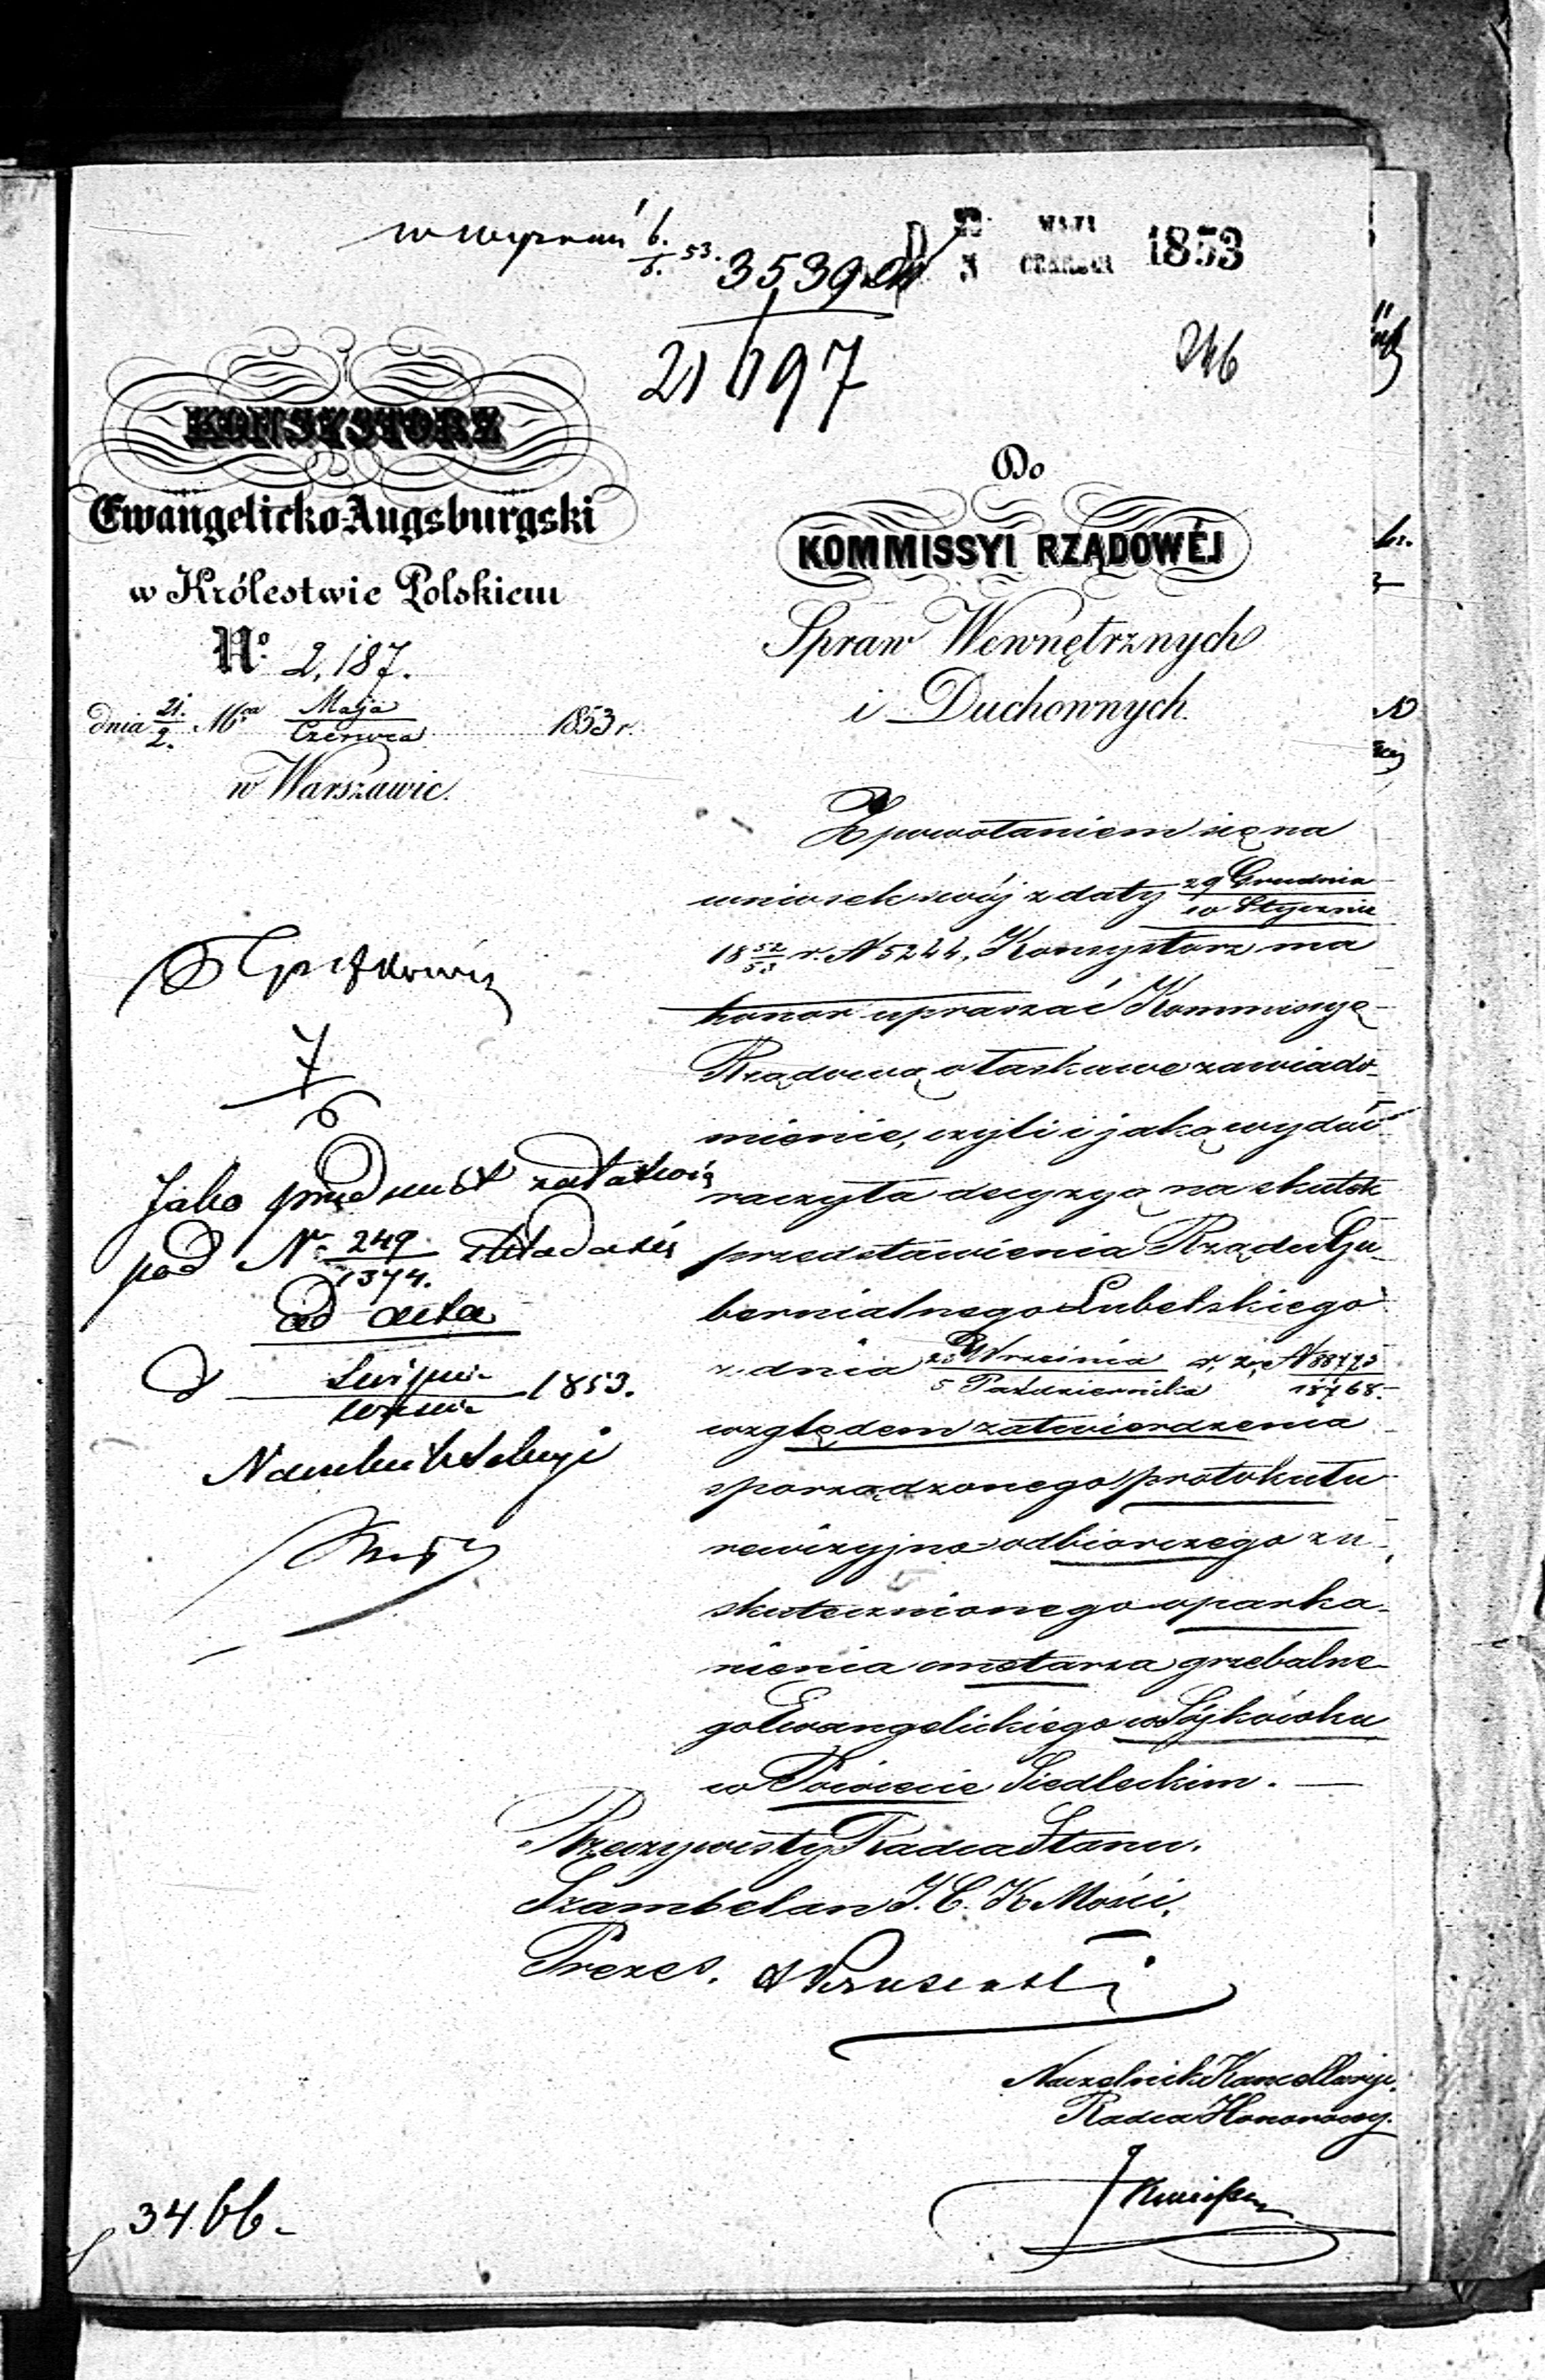 3539
21197
22 MAJA 1853
3 CZERWCA
246
KONSYSTORZ
Ewangelicko-Augsburgski
w Królestwie Polskiem
No. 2,187.
dnia 21./2. Mca Maja/Czerwca 1853 r.
w Warszawie.
Do
KOMMISSYI RZĄDOWÉJ
Spraw Wewnętrznych
i Duchownych.
Z powołaniem się na
wniosek swój z daty 29 Grudnia/10 Stycznia
18 52/53 r. N 5244, Konsystorz ma
honor upraszać Kommissyę
Rządową o łaskawe zawiado-
mienie, czyli i jaką wydać
raczyła decyzyą na skutek
przedstawienia Rządu Gu-
bernialnego Lubelskiego
z dnia 23 Września/5 Października r. z. N 88723/18768.
względem zatwierdzenia
sporządzonego protokułu
rewizyjno odbiorczego z u-
skutecznionego oparka-
nienia cmętarza grzebalne-
go Ewangelickiego w Sójkówku
w Powiecie Siedleckim. —
Rzeczywisty Radca Stanu.
Szambelan J. C. K. Mości,
Prezes.
Naczelnik Kancellaryi,
Radca Honorowy.
7/6
Jako przedmiot załatwią
pod N. 249/1374. składa się
ad acta
1853.
Naczelnik Sekcyi
3466.